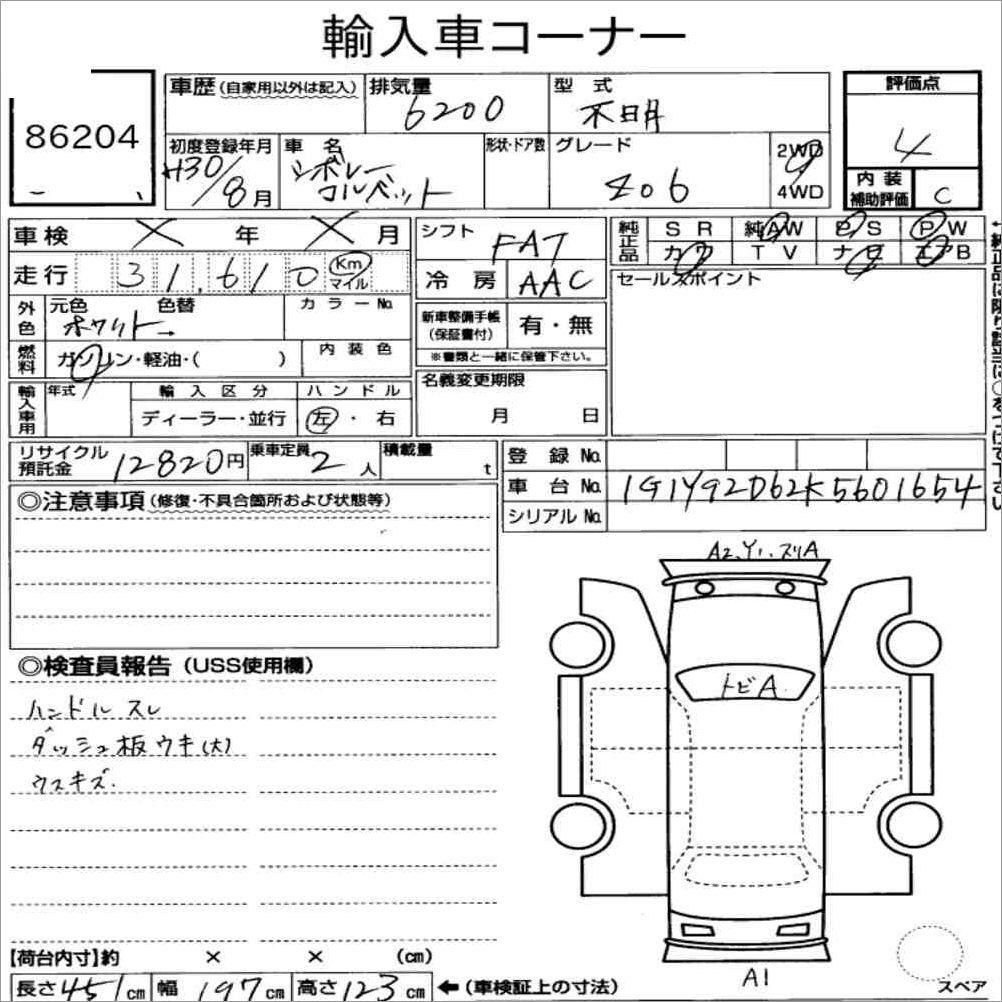 輸入車コーナー
86204
車歴 (自家用以外は記入)
排気量
6200
型式
不明
評価点
4
初度登録年月
H30/8月
車名
シボレー
コルベット
形状・ドア数
グレード
Z06
2WD
4WD
内装
補助評価
C
車検 × 年 × 月
シフト
FAT
純正品
SR 純AW PS PW
カワ TV ナビ エアB
走行 31,610 Km
マイル
冷房 AAC
セールスポイント
外色
元色 色替
ホワイト→
カラーNo.
新車整備手帳
(保証書付)
有・無
※書類と一緒に保管下さい。
燃料
ガソリン・軽油・( )
内装色
名義変更期限
月 日
輸入車用
年式
輸入区分
ディーラー・並行
ハンドル
左・右
リサイクル
預託金
12820円
乗車定員
2人
積載量
t
登録No.
車台No. 1G1Y92D62K5601654
シリアルNo.
◎注意事項 (修復・不具合箇所および状態等)
A2、Y1、スリA
トビA
◎検査員報告 (USS使用欄)
ハンドルスレ
ダッシュ板ウキ(大)
ウスキズ.
A1
【荷台内寸】約 × × (cm)
長さ451cm 幅197cm 高さ123cm ←(車検証上の寸法)
スペア